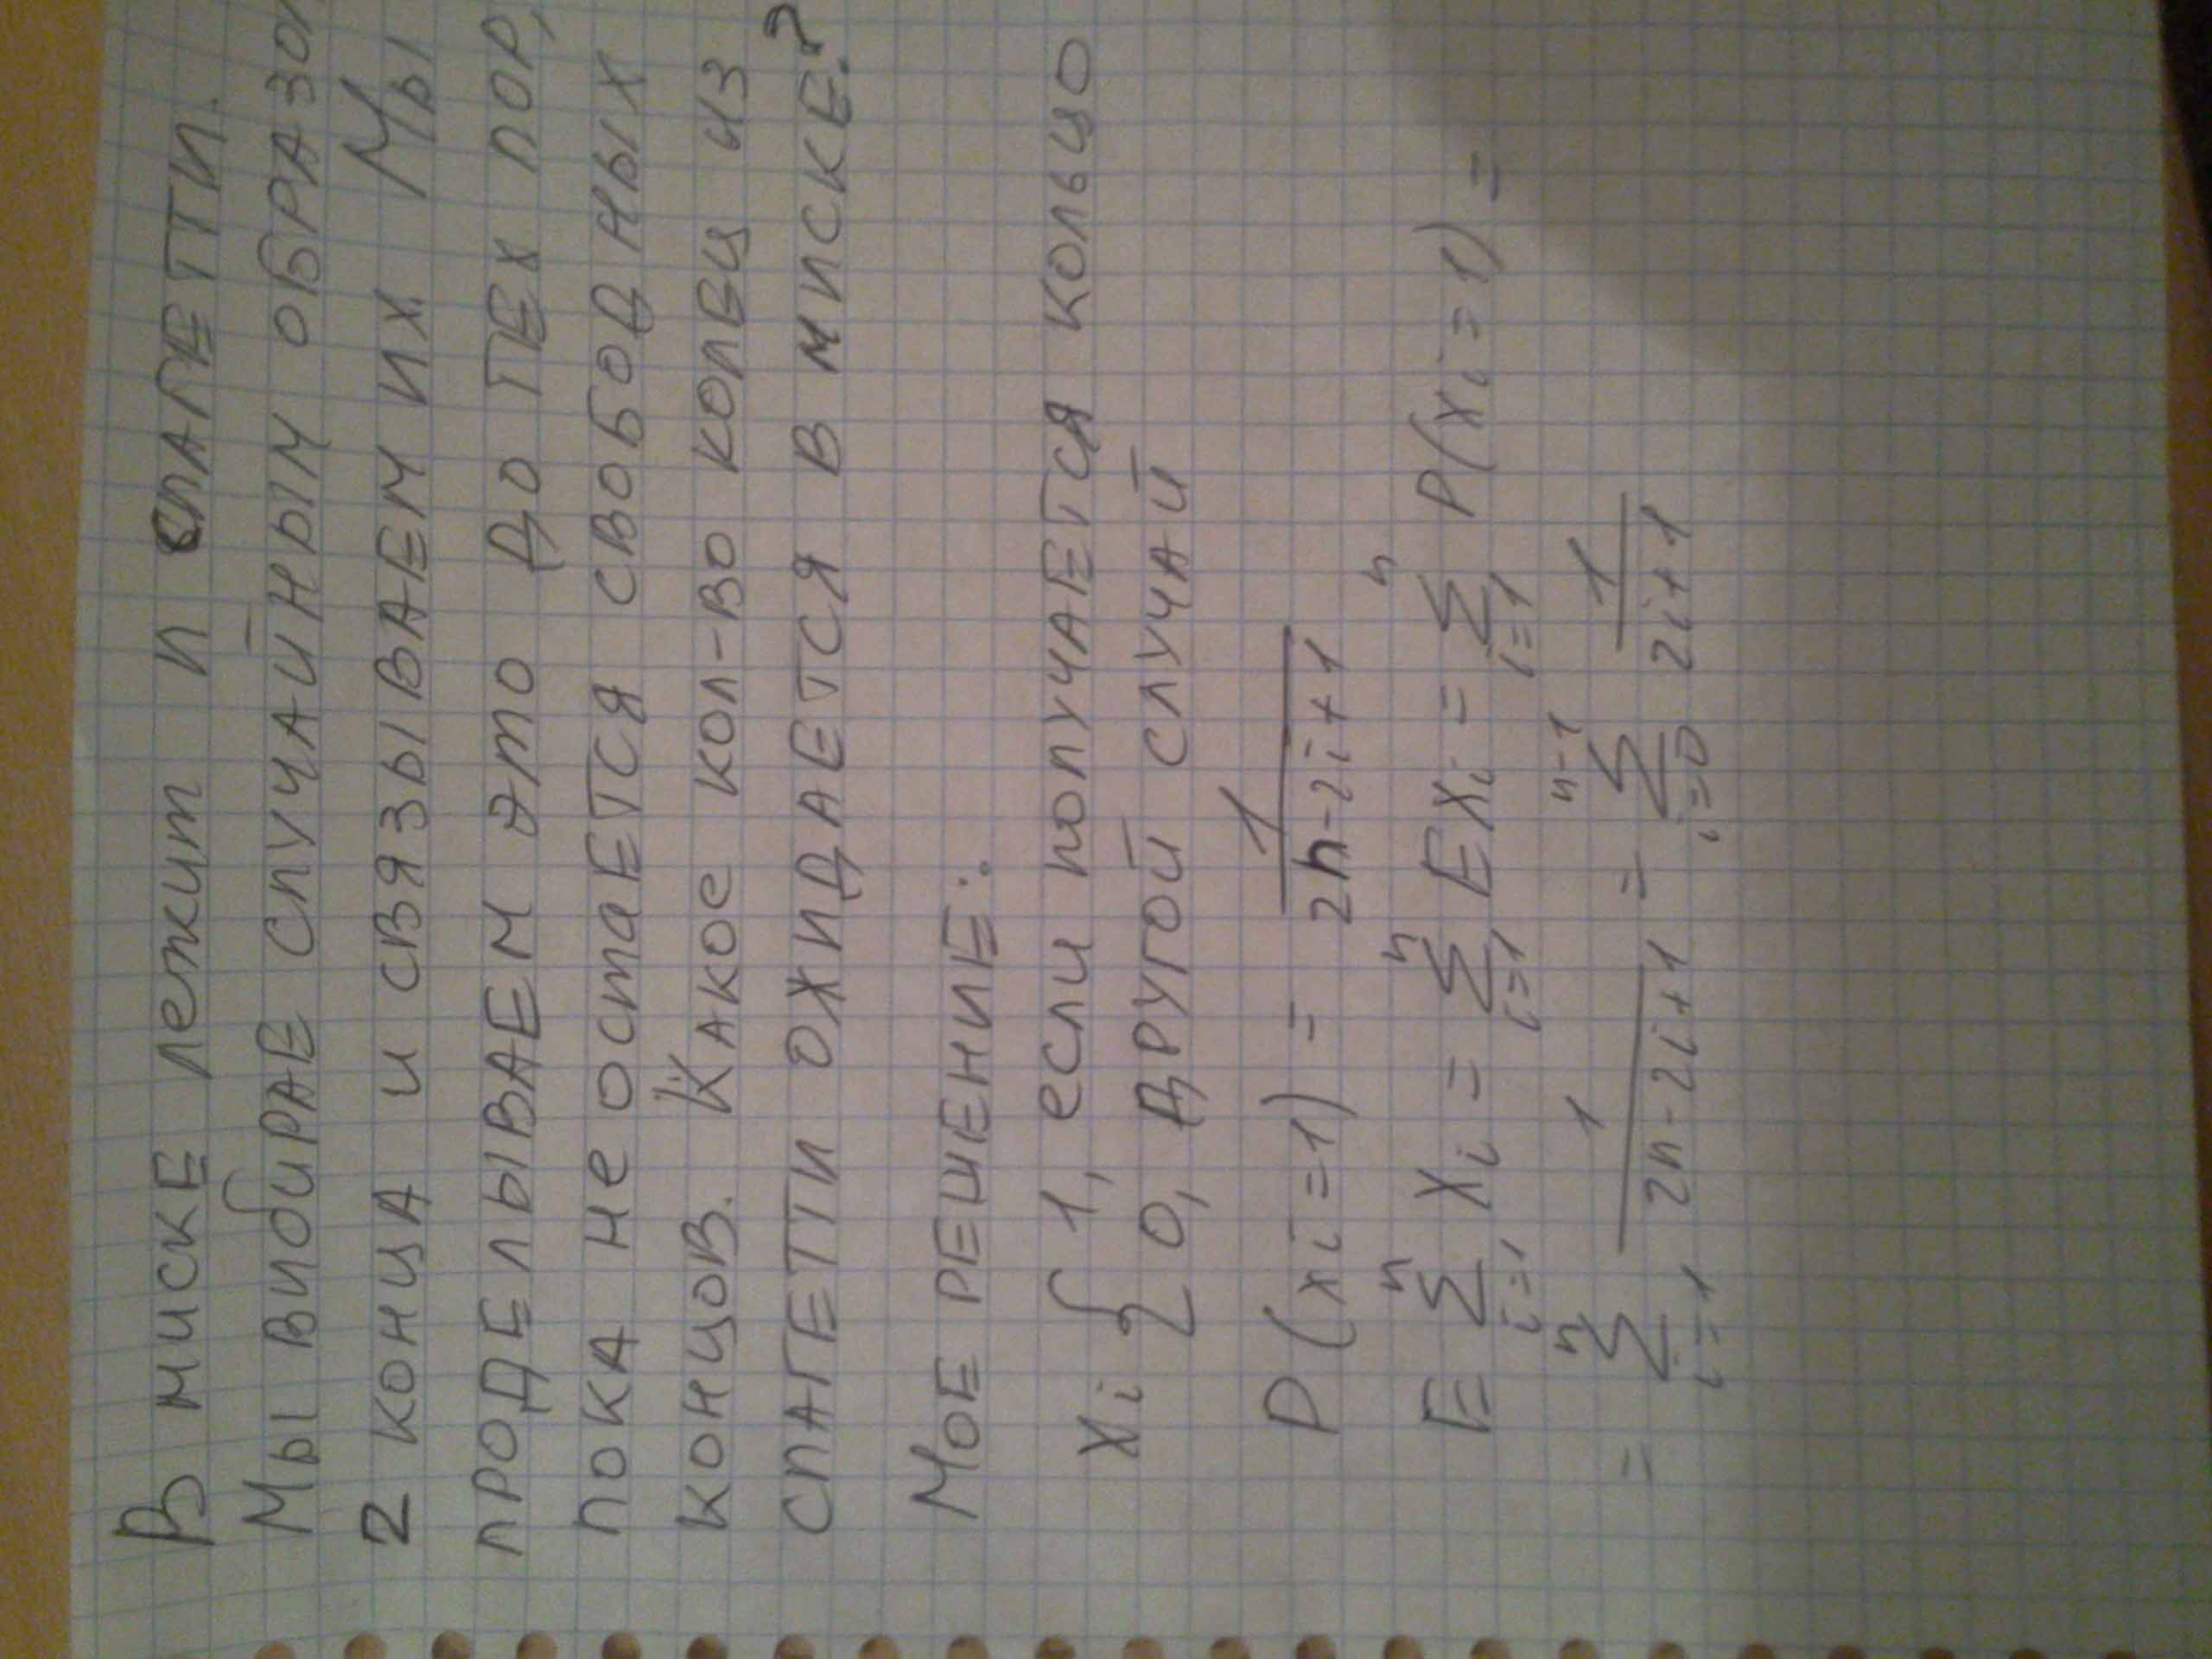 В миске лежит n спагетти.
Мы вибирае случайным образом
2 конца и связываем их. Мы
проделываем это до тех пор,
пока не остается свободных
концов. Какое кол-во колец из
спагетти ожидается в миске?
Мое решение:
Xi { 1, если получается кольцо
0, другой случай
P(xi=1) = 1/(2n-2i+1)
E ∑_{i=1}^{n} Xi = ∑_{i=1}^{n} EXi = ∑_{i=1}^{n} P(Xi=1) =
= ∑_{i=1}^{n} 1/(2n-2i+1) = ∑_{i=0}^{n-1} 1/(2i+1)